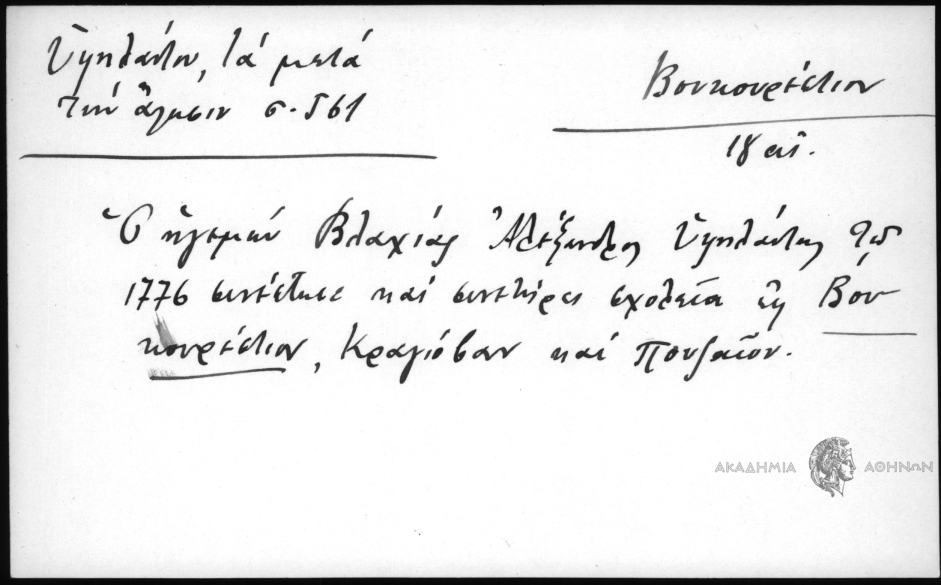 Ὑψηλάντου, τά μετά
τήν ἅλωσιν σ. 561
Βουκουρέστιον
18 αἰ.
Ὁ ἡγεμών Βλαχίας Ἀλέξανδρος Ὑψηλάντης τῷ
1776 συνέστησε καί συνετήρει σχολεῖα εἰς Βου-
κουρέστιον, Κραγιόβαν καί Πουζαῖον.
ΑΚΑΔΗΜΙΑ ΑΘΗΝΩΝ